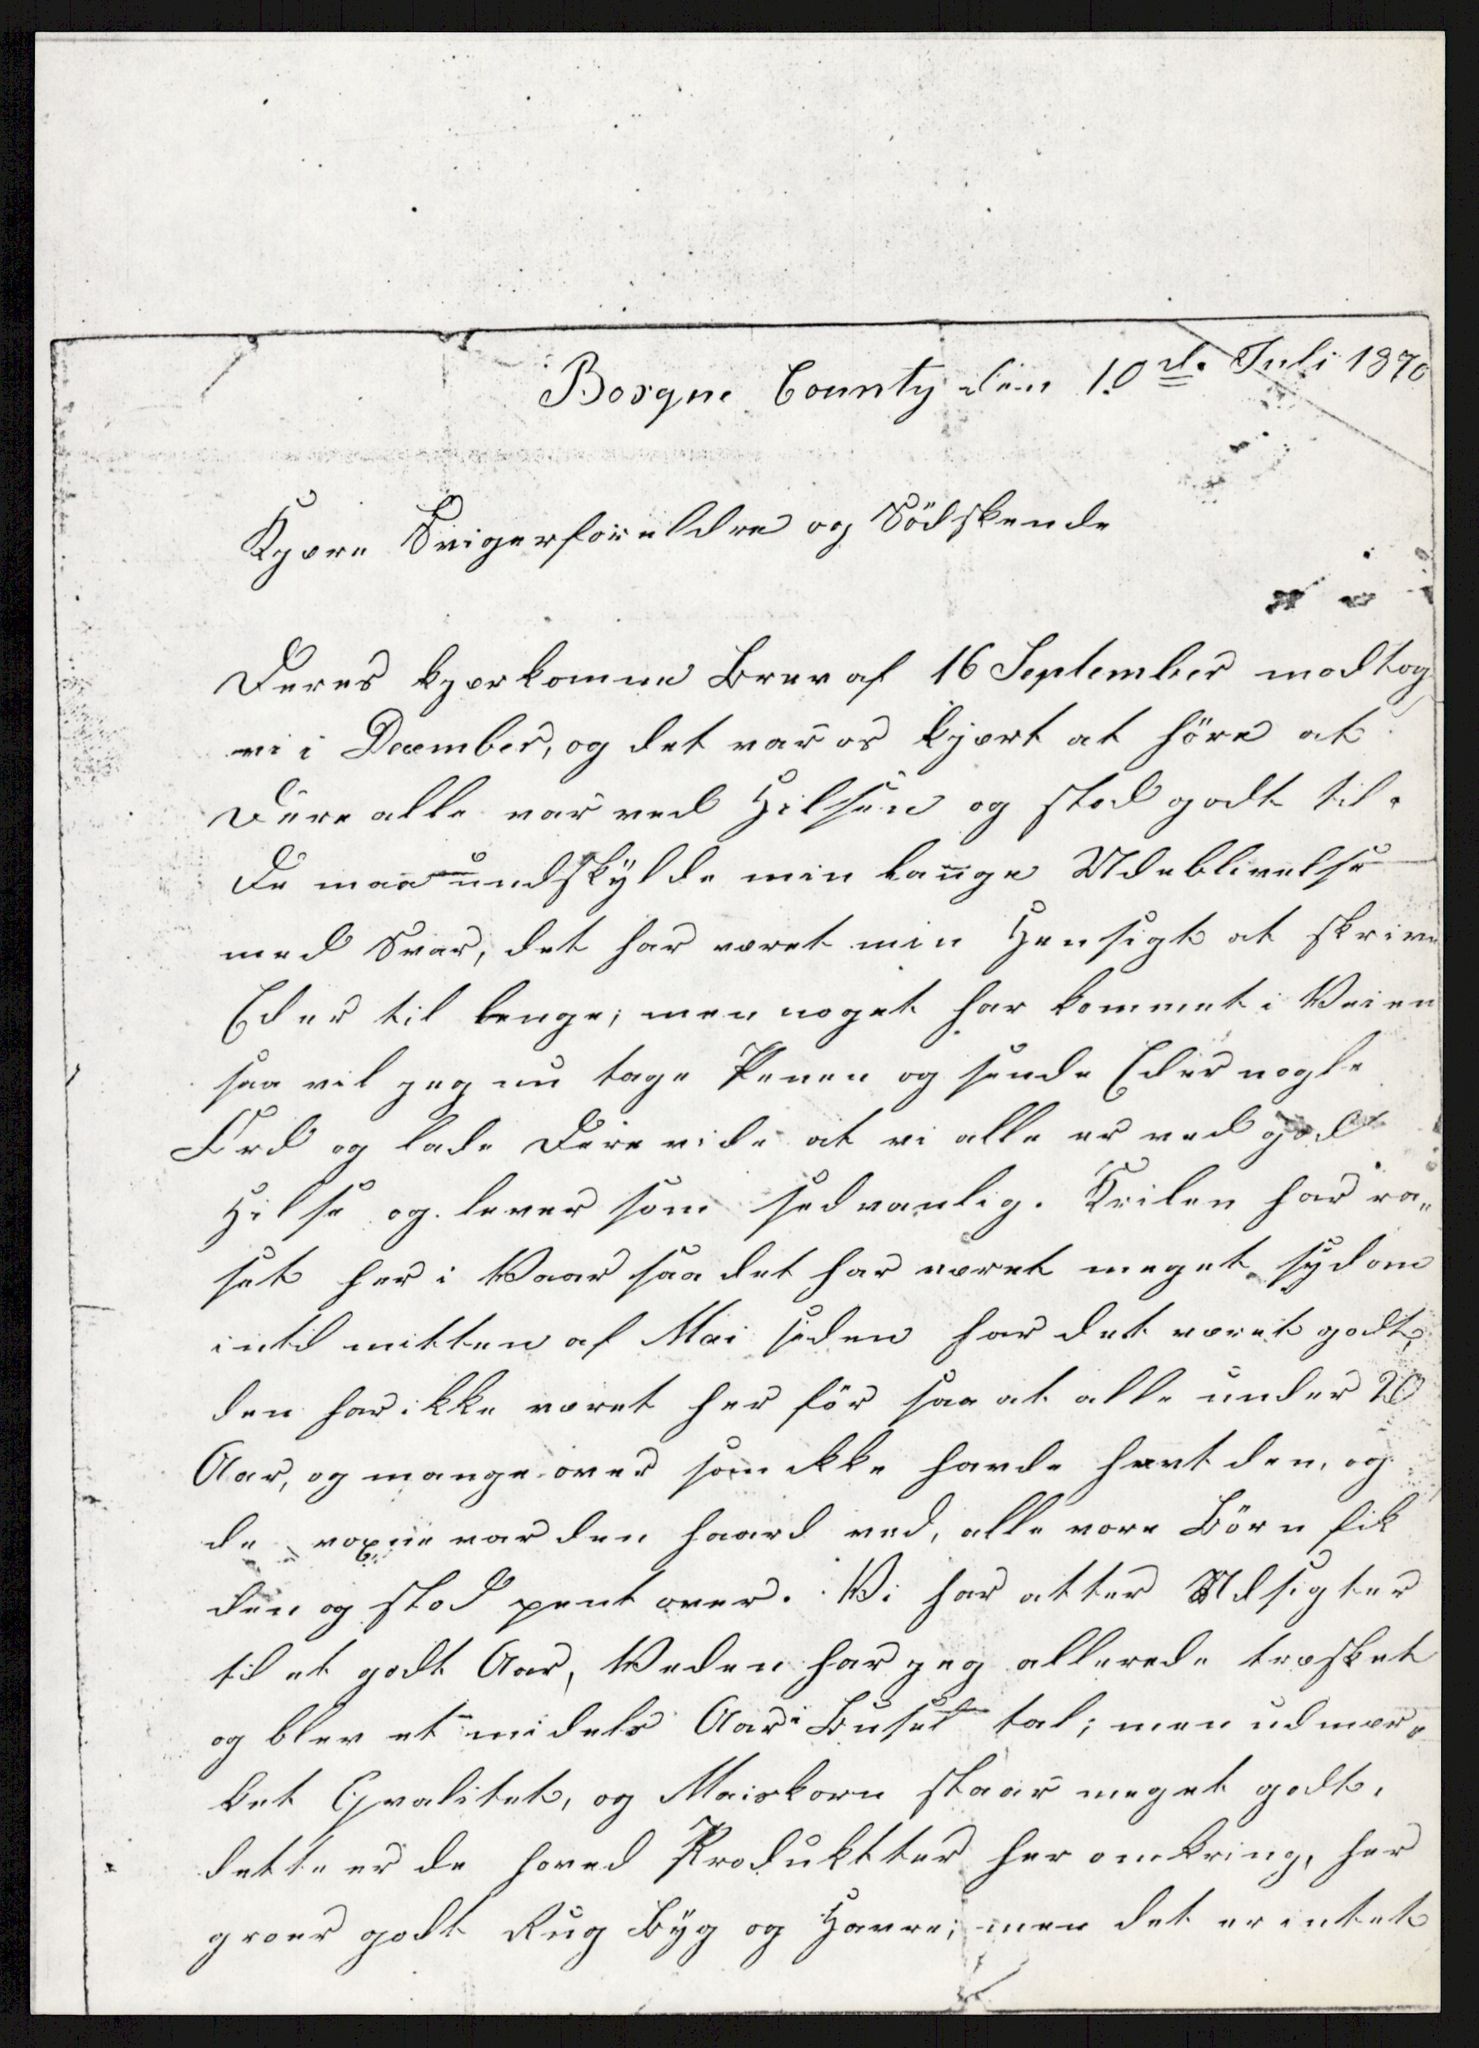 Bosque County den 10d. Juli 1870
Kjære Svigerforeldre og Södskende
Deres kjærkomne Brev af 16 September modtog
vi i December, og det var os kjært at höre at
Dere alle var ved Hilsen og stod godt til.
De maa undskylde min lange Udeblivelse
med Svar, det har været min Hensigt at skrive
Eder til lenge; men noget har kommet i Veien
saa vil jeg nu tage Penen og sende Eder nogle
Ord og lade Dere vide at vi alle er ved god
Hilse og lever som sedvanlig. Krilen har ra„
set her i Vaar saa det har været meget sydom
intil mitten af Mai siden har det været godt,
den har ikke været her för saa at alle under 20
Aar, og mange over som ikke havde havt den, og
de voxne var den haard ved, alle vore Börn fik
den og stod pent over. Vi har atter Udsigter
til et godt Aar, Veden har jeg allerede træsket
og blev et midels Aar i Busel tal; men udmær„
ket Qvalitet, og Maiskorn staar meget godt,
dette er de hoved Produktter her omkring, her
groer godt Rug Byg og Havre; men det er intet